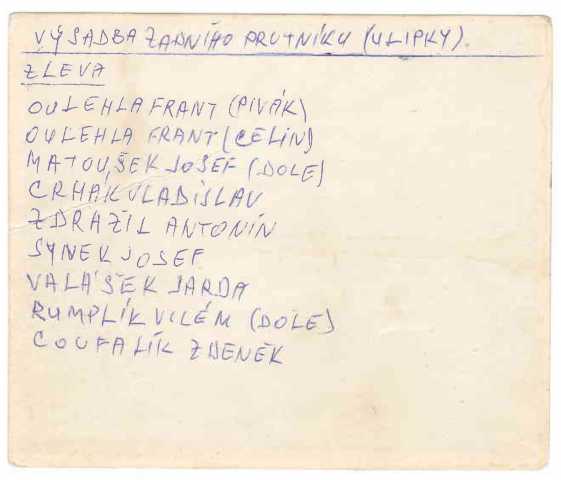 VÝSADBA ZADNÍHO PRUTNÍKU (U LIPKY).
ZLEVA
OULEHLA FRANT (PIVÁK)
OULEHLA FRANT (CELIN)
MATOUŠEK JOSEF (DOLE)
CRHÁK VLADISLAV
ZDRAŽIL ANTONÍN
SYNEK JOSEF
VALÁŠEK JARDA
RUMPLÍK VILÉM (DOLE)
COUFALÍK ZDENĚK